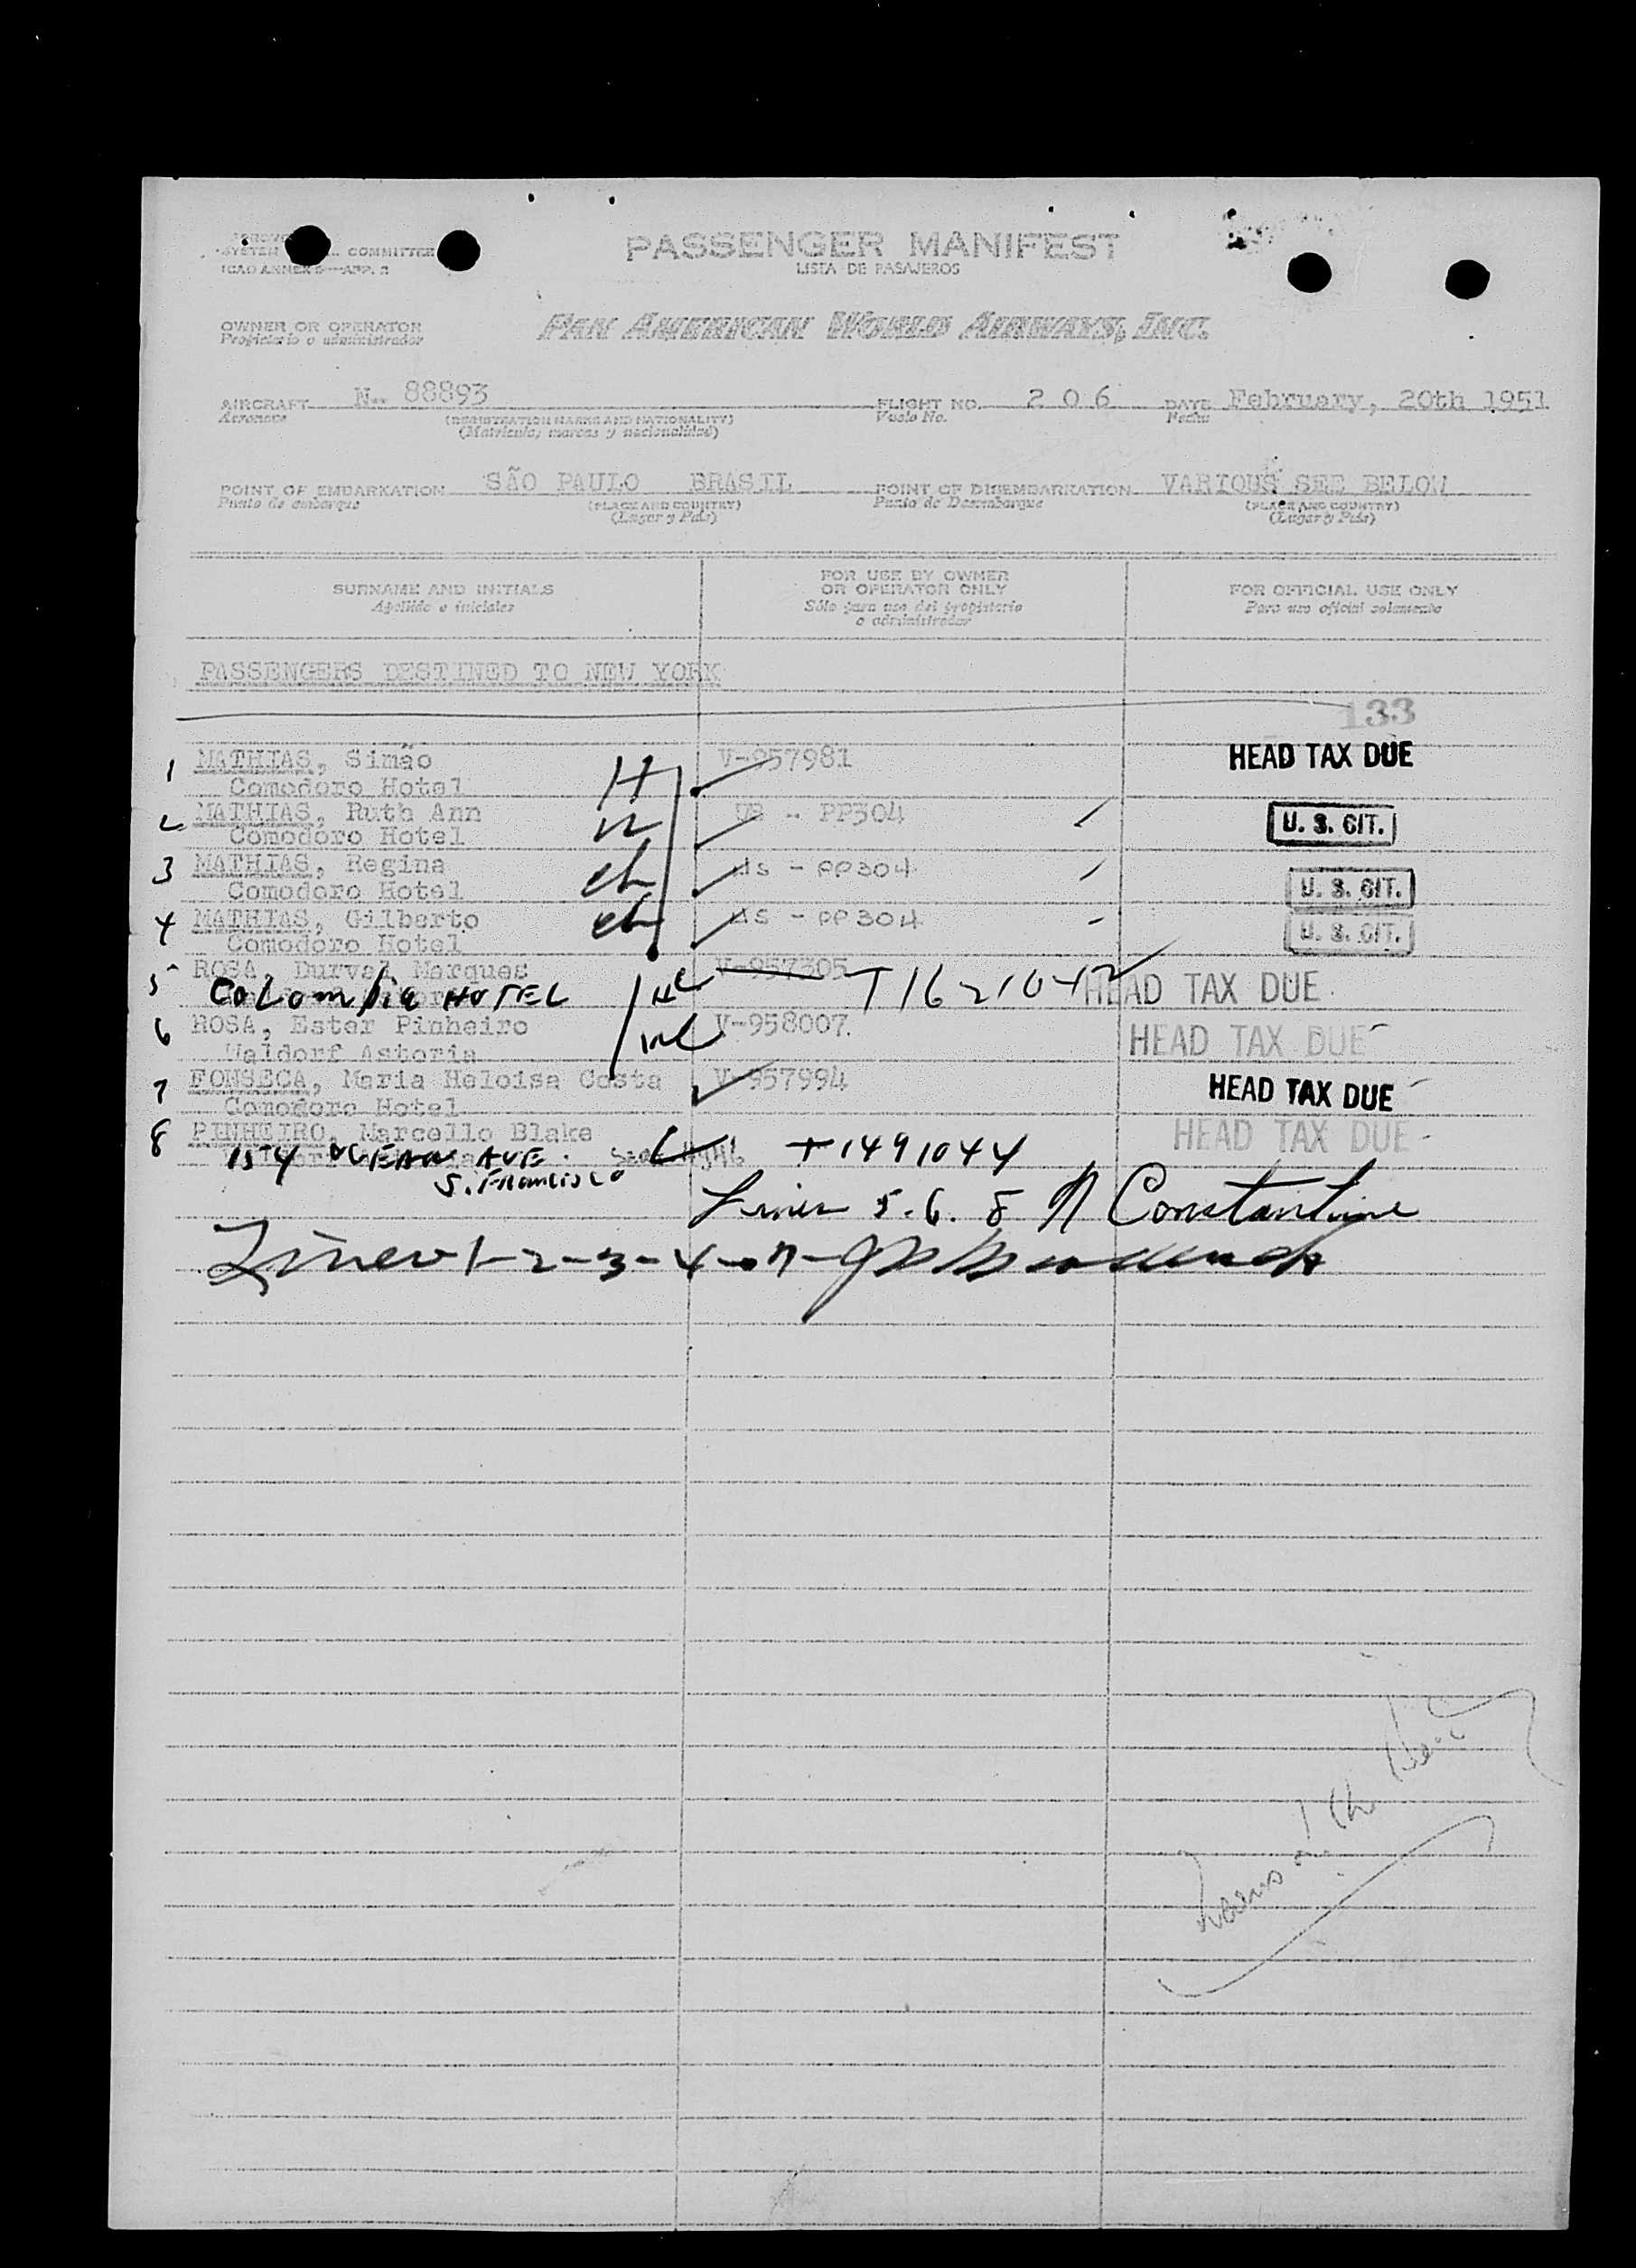 SYSTEM COMMITTEE
ICAO ANNEX 9—APP. 2
PASSENGER MANIFEST
LISTA DE PASAJEROS
OWNER OR OPERATOR
Propietario o administrador
PAN AMERICAN WORLD AIRWAYS, INC.
AIRCRAFT N-- 88893 FLIGHT NO. 2 0 6 DATE February, 20th 1951
Aeronave (REGISTRATION MARKS AND NATIONALITY) Vuelo No. Fecha
(Matricula, marcas y nacionalidad)
POINT OF EMBARKATION SÃO PAULO BRASIL POINT OF DISEMBARKATION VARIOUS SEE BELOW
Punto de embarque (PLACE AND COUNTRY) Punto de Desembarque (PLACE AND COUNTRY)
(Lugar y País) (Lugar y País)
SURNAME AND INITIALS FOR USE BY OWNER OR OPERATOR ONLY FOR OFFICIAL USE ONLY
Apellido e iniciales Sólo para uso del propietario o administrador Para uso oficial solamente
PASSENGERS DESTINED TO NEW YORK
133
1 MATHIAS, Simão H V-957981 HEAD TAX DUE
Comodoro Hotel
2 MATHIAS, Ruth Ann W US - PP304 U. S. CIT.
Comodoro Hotel
3 MATHIAS, Regina ch US - PP304 U. S. CIT.
Comodoro Hotel
4 MATHIAS, Gilberto ch US - PP304 U. S. CIT.
Comodoro Hotel
5 ROSA, Durval Marques V-957305 T1621042 HEAD TAX DUE
COLOMBIA HOTEL
6 ROSA, Ester Pinheiro V-958007. HEAD TAX DUE
Waldorf Astoria
7 FONSECA, Maria Heloisa Costa V-957994 HEAD TAX DUE
Comodoro Hotel
8 PINHEIRO, Marcello Blake T1491044 HEAD TAX DUE
OCEAN AVE.
S. FRANCISCO
Lines 5. 6. 8 N Constantine
Lines 1-2-3-4-7-